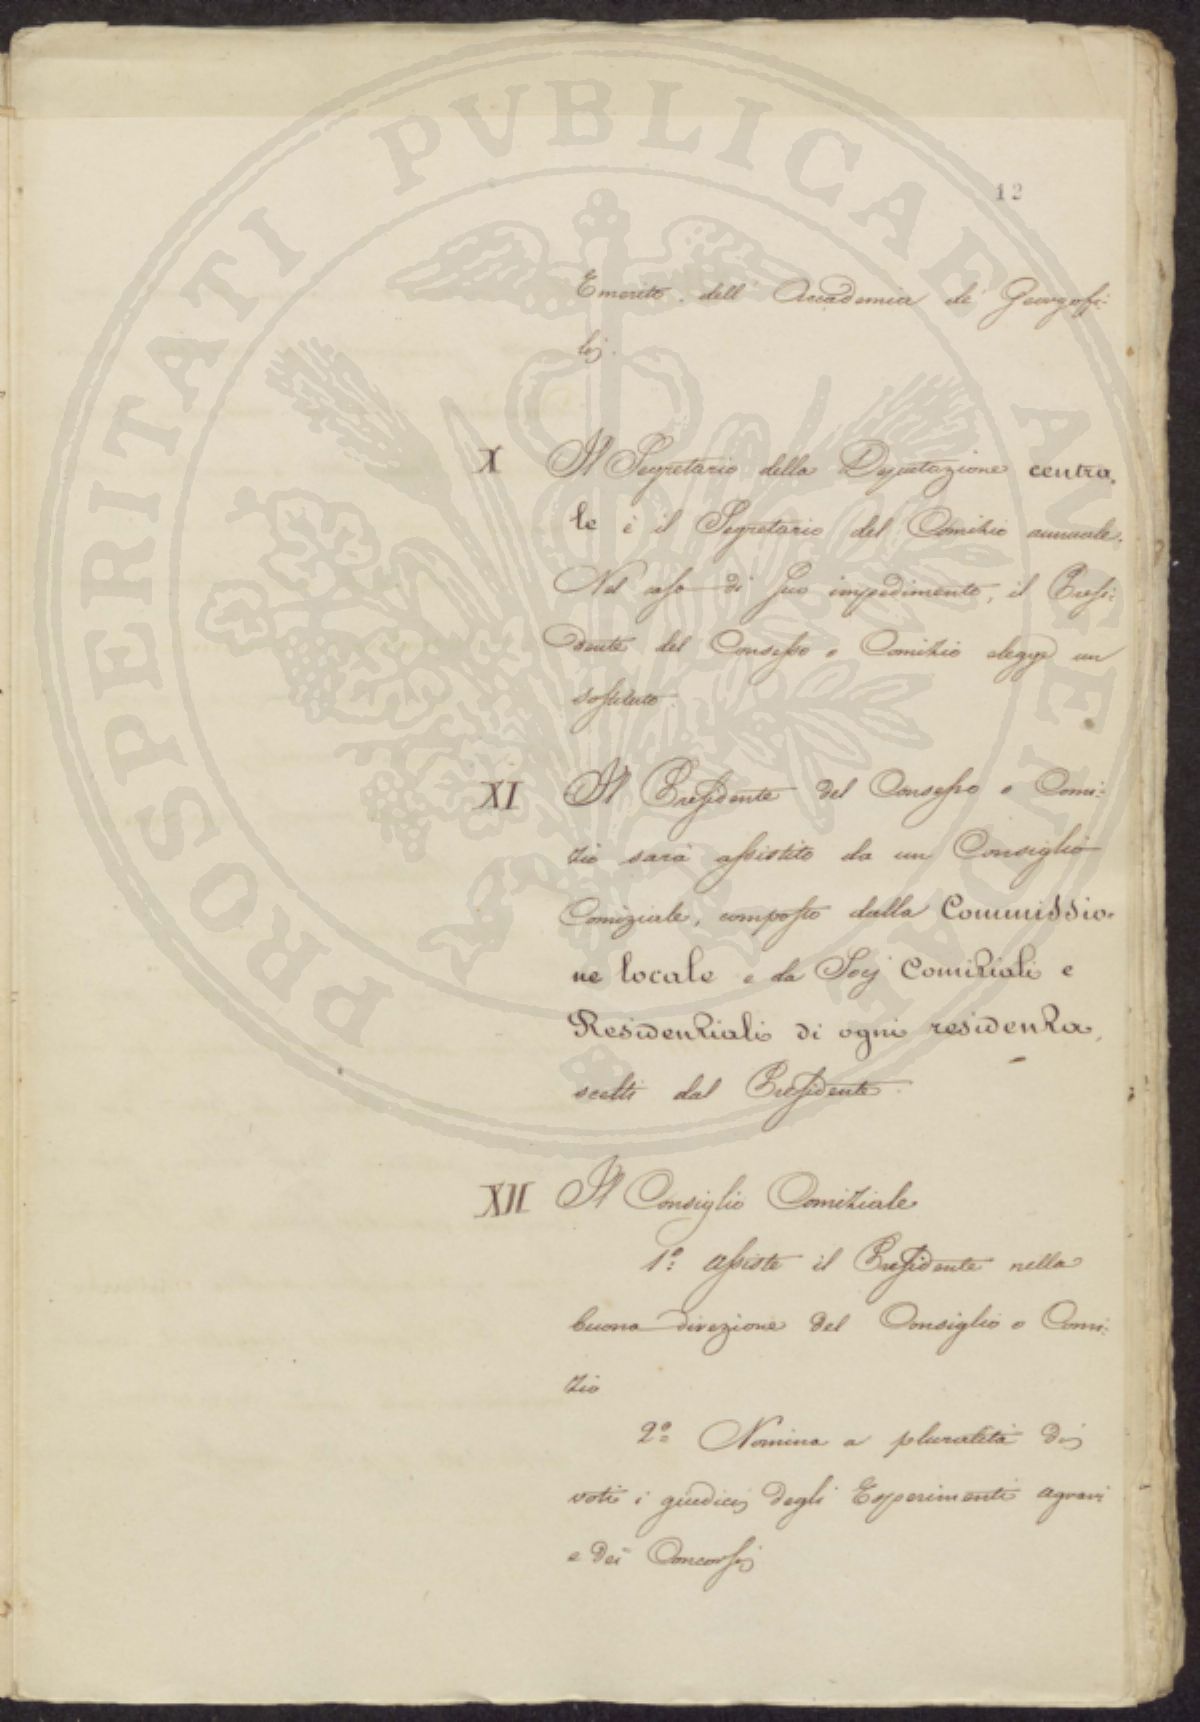 PROSPERITATI PUBLICAE AUGENDAE
12
Emerito dell' Accademia de' Georgofi-
lj.
X Il Segretario della Deputazione centra-
le è il Segretario del Comizio annuale.
Nel caso di suo impedimento, il Presi-
dente del Consesso o Comizio elegge un
sostituto.
XI Il Presidente del Consesso o Comi-
zio sarà assistito da un Consiglio
Comiziale, composto dalla Commissio-
ne locale e da Socj Comiziali e
Residenziali di ogni residenza,
scelti dal Presidente.
XII Il Consiglio Comiziale
1º: assiste il Presidente nella
buona direzione del Consiglio o Comi-
zio
2º Nomina a pluralità di
voti i giudici degli Esperimenti agrari
e dei Concorsi